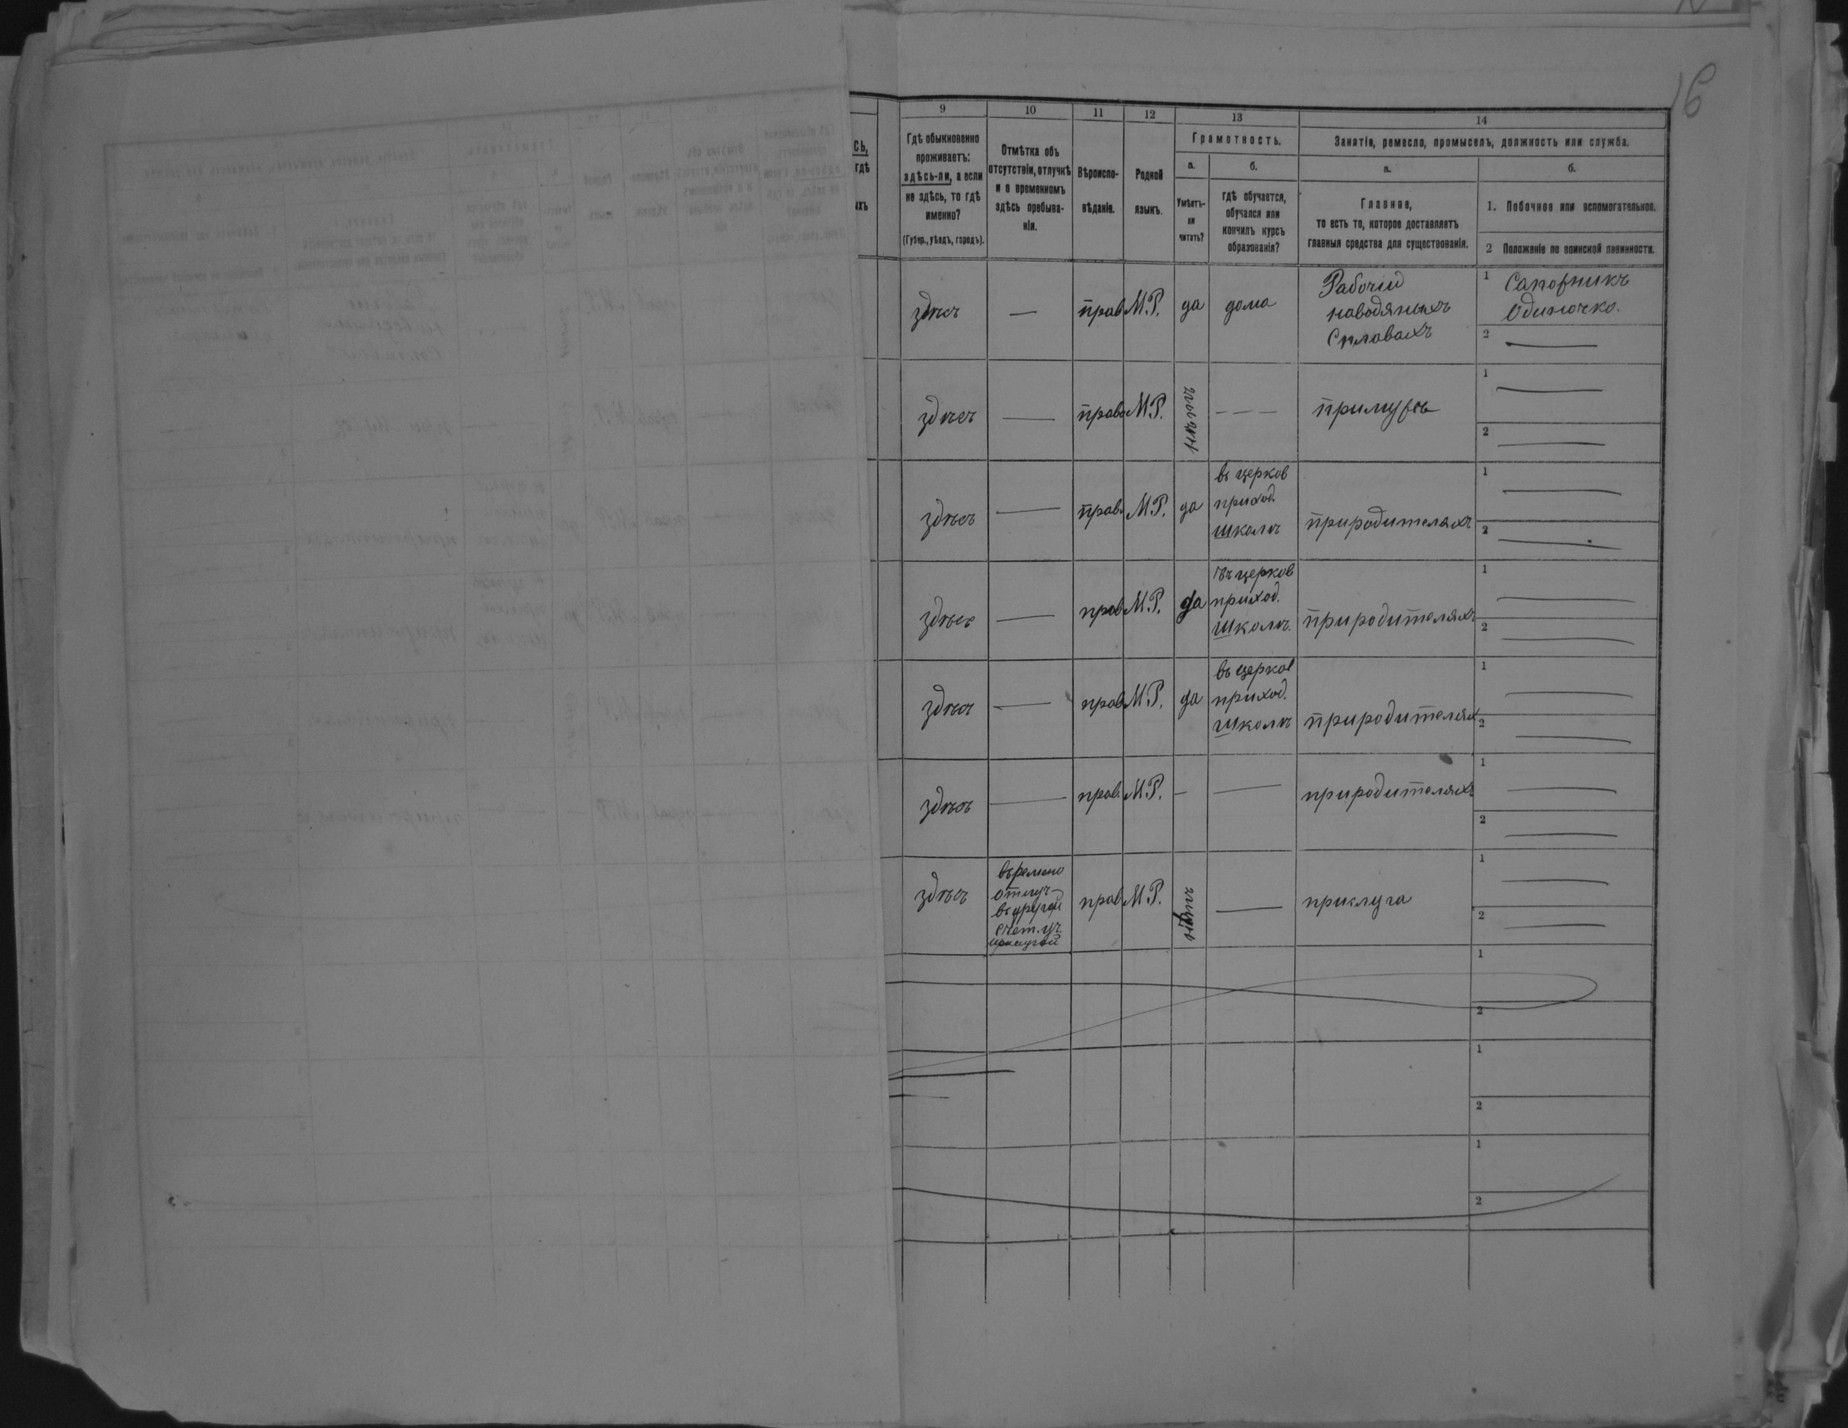 16
9 10 11 12 13 14
СЬ,
гдѣ
ихъ
Гдѣ обыкновенно
проживаетъ:
здѣсь-ли, а если
не здѣсь, то гдѣ
именно?
(Губер., уѣздъ, городъ).
Отмѣтка объ
отсутствіи, отлучкѣ
и о временномъ
здѣсь пребыва-
ніи.
Вѣроиспо-
вѣданіе.
Родной
языкъ.
Грамотность.
а.
Умѣетъ-
ли
читать?
б.
гдѣ обучается,
обучался или
кончилъ курсъ
образованія?
Занятіе, ремесло, промыселъ, должность или служба.
а.
Главное,
то есть то, которое доставляетъ
главныя средства для существованія.
б.
1. Побочное или вспомогательное.
2 Положеніе по воинской повинности.
здѣсь — прав. М.Р. да дома
Рабочій
наводяныхъ
Сплавахъ
1 Сапожникъ
Одиночка.
2 —
здѣсь — право М.Р. нѣтъ — — — примужѣ
1 —
2 —
здѣсь — прав. М.Р. да
въ церков
приход.
школѣ
природителяхъ
1 —
2 —
здѣсь — прав М.Р. да
въ церков
приход.
школѣ.
природителяхъ
1 —
2 —
здѣсь — прав М.Р. да
въ церков
приход.
школѣ
природителях
1 —
2 —
здѣсь — прав. М.Р. — — природителяхъ
1 —
2 —
здѣсь
въ другой
прав М.Р. нѣтъ — прислуга
1 —
2 —
1
2
1
2
1
2